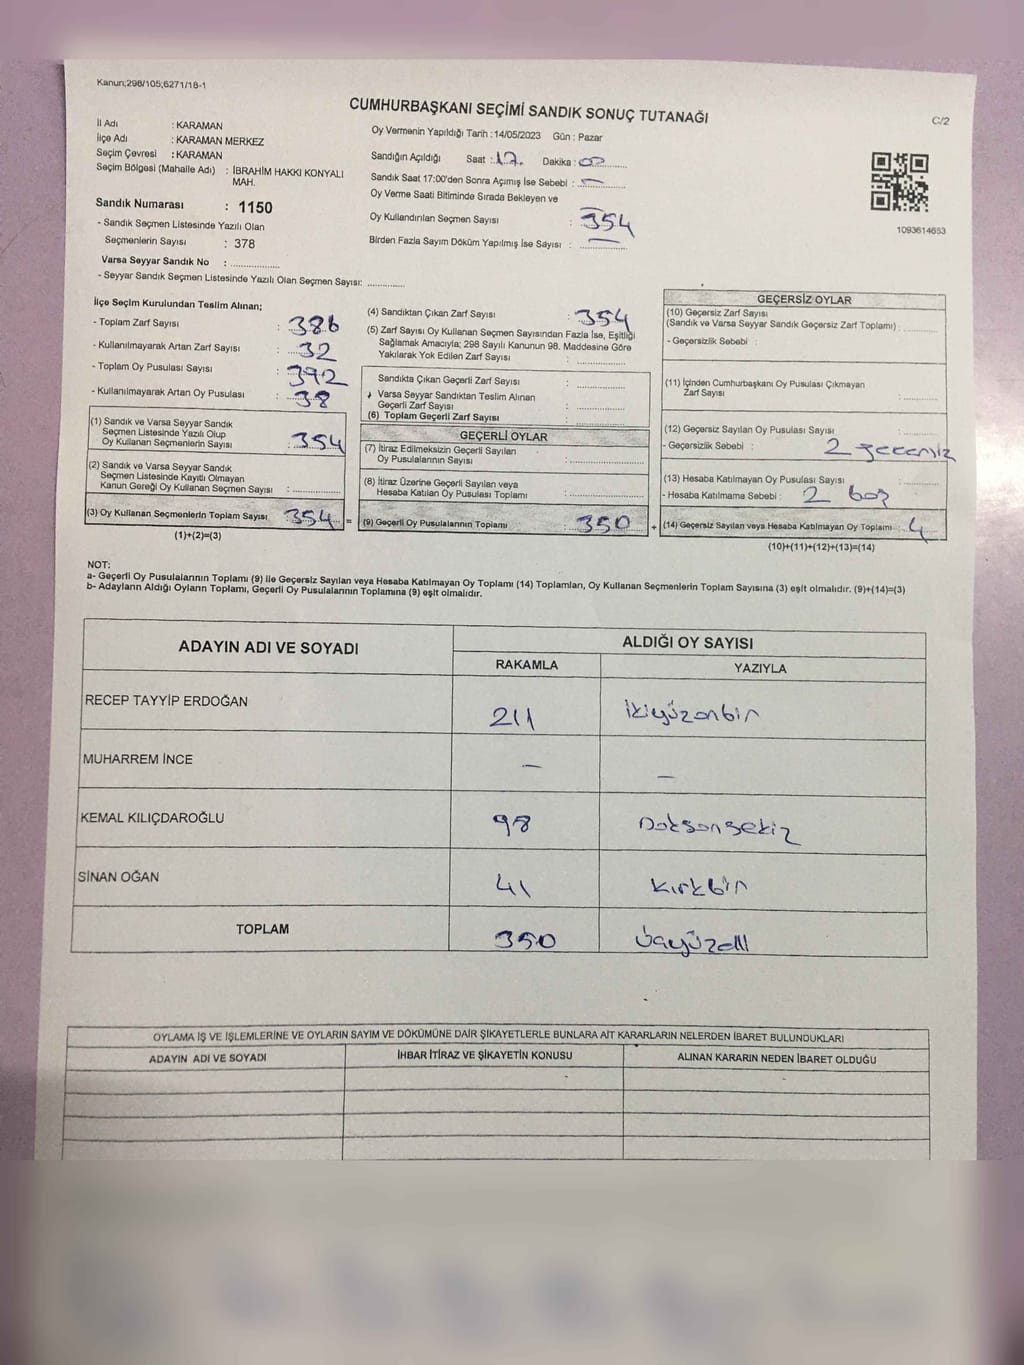 Kanun;298/105;6271/18-1
CUMHURBAŞKANI SEÇİMİ SANDIK SONUÇ TUTANAĞI
C/2
İl Adı : KARAMAN
İlçe Adı : KARAMAN MERKEZ
Seçim Çevresi : KARAMAN
Seçim Bölgesi (Mahalle Adı) : İBRAHİM HAKKI KONYALI
MAH.
Sandık Numarası : 1150
- Sandık Seçmen Listesinde Yazılı Olan
Seçmenlerin Sayısı : 378
Varsa Seyyar Sandık No : ................
- Seyyar Sandık Seçmen Listesinde Yazılı Olan Seçmen Sayısı: ............
Oy Vermenin Yapıldığı Tarih : 14/05/2023 Gün : Pazar
Sandığın Açıldığı Saat : 17 Dakika : 00
Sandık Saat 17:00'den Sonra Açımış İse Sebebi : —
Oy Verme Saati Bitiminde Sırada Bekleyen ve
Oy Kullandırılan Seçmen Sayısı : 354
Birden Fazla Sayım Döküm Yapılmış İse Sayısı : —
1093614653
İlçe Seçim Kurulundan Teslim Alınan;
- Toplam Zarf Sayısı : 386
- Kullanılmayarak Artan Zarf Sayısı : 32
- Toplam Oy Pusulası Sayısı : 392
- Kullanılmayarak Artan Oy Pusulası : 38
(1) Sandık ve Varsa Seyyar Sandık
Seçmen Listesinde Yazılı Olup
Oy Kullanan Seçmenlerin Sayısı : 354
(2) Sandık ve Varsa Seyyar Sandık
Seçmen Listesinde Kayıtlı Olmayan
Kanun Gereği Oy Kullanan Seçmen Sayısı : ............
(3) Oy Kullanan Seçmenlerin Toplam Sayısı 354 =
(1)+(2)=(3)
(4) Sandıktan Çıkan Zarf Sayısı : 354
(5) Zarf Sayısı Oy Kullanan Seçmen Sayısından Fazla İse, Eşitliği
Sağlamak Amacıyla; 298 Sayılı Kanunun 98. Maddesine Göre
Yakılarak Yok Edilen Zarf Sayısı : ............
Sandıkta Çıkan Geçerli Zarf Sayısı : ............
Varsa Seyyar Sandıktan Teslim Alınan
Geçerli Zarf Sayısı : ............
(6) Toplam Geçerli Zarf Sayısı : ............
GEÇERLİ OYLAR
(7) İtiraz Edilmeksizin Geçerli Sayılan
Oy Pusulalarının Sayısı : ............
(8) İtiraz Üzerine Geçerli Sayılan veya
Hesaba Katılan Oy Pusulası Toplamı : ............
(9) Geçerli Oy Pusulalarının Toplamı : 350 +
GEÇERSİZ OYLAR
(10) Geçersiz Zarf Sayısı
(Sandık ve Varsa Seyyar Sandık Geçersiz Zarf Toplamı) : ............
- Geçersizlik Sebebi :
(11) İçinden Cumhurbaşkanı Oy Pusulası Çıkmayan
Zarf Sayısı : ............
(12) Geçersiz Sayılan Oy Pusulası Sayısı : ............
- Geçersizlik Sebebi : 2 geçersiz
(13) Hesaba Katılmayan Oy Pusulası Sayısı : ............
- Hesaba Katılmama Sebebi : 2 boş
(14) Geçersiz Sayılan veya Hesaba Katılmayan Oy Toplamı : 4
(10)+(11)+(12)+(13)=(14)
NOT:
a- Geçerli Oy Pusulalarının Toplamı (9) ile Geçersiz Sayılan veya Hesaba Katılmayan Oy Toplamı (14) Toplamları, Oy Kullanan Seçmenlerin Toplam Sayısına (3) eşit olmalıdır. (9)+(14)=(3)
b- Adayların Aldığı Oyların Toplamı, Geçerli Oy Pusulalarının Toplamına (9) eşit olmalıdır.
ADAYIN ADI VE SOYADI ALDIĞI OY SAYISI
RAKAMLA YAZIYLA
RECEP TAYYİP ERDOĞAN 211 İkiyüzonbir
MUHARREM İNCE — —
KEMAL KILIÇDAROĞLU 98 Doksansekiz
SİNAN OĞAN 41 Kırkbir
TOPLAM 350 üçyüzelli
OYLAMA İŞ VE İŞLEMLERİNE VE OYLARIN SAYIM VE DÖKÜMÜNE DAİR ŞİKAYETLERLE BUNLARA AİT KARARLARIN NELERDEN İBARET BULUNDUKLARI
ADAYIN ADI VE SOYADI İHBAR İTİRAZ VE ŞİKAYETİN KONUSU ALINAN KARARIN NEDEN İBARET OLDUĞU